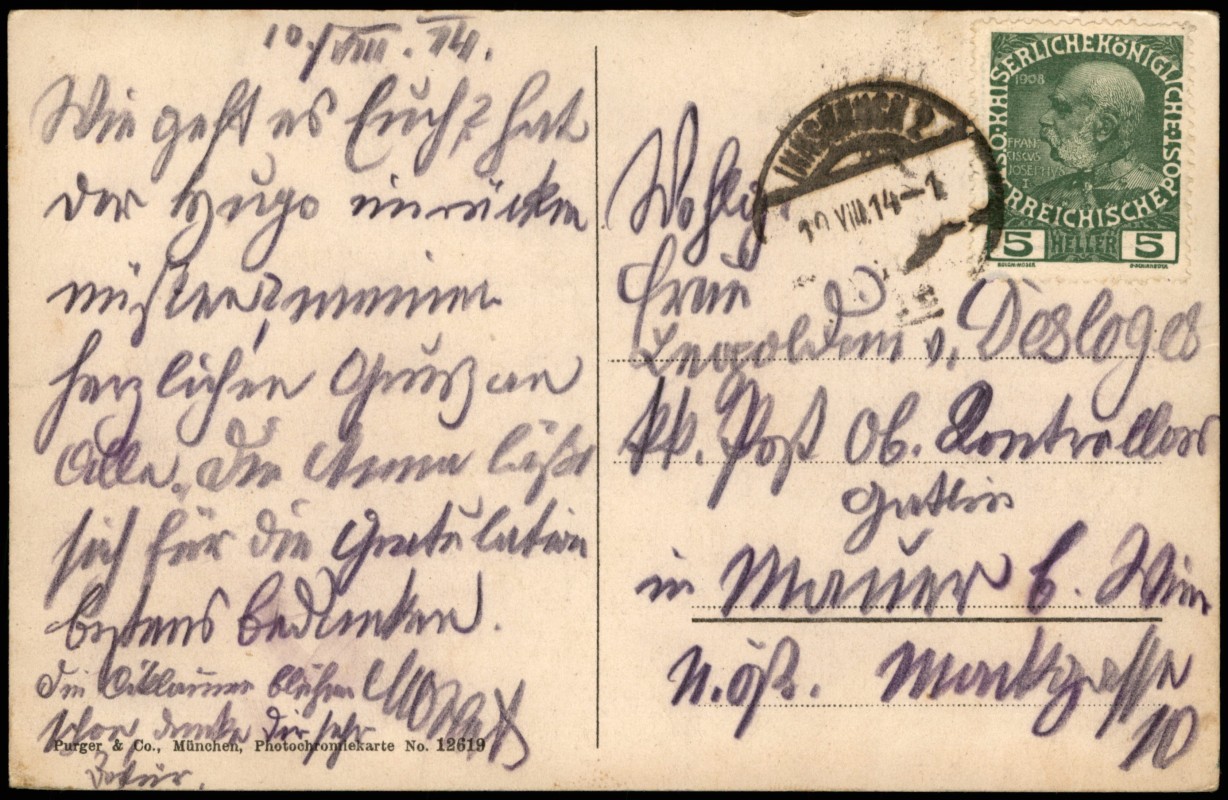 10./VIII. 14.
Wie geht es Euch? hat
der Hugo einrücken
müssen? meinen
herzlichen Gruß an
Alle. Die Anna läßt
sich für die Gratulation
bestens bedanken.
Die blühen
schon danke Dir sehr
dafür.
Purger & Co., München, Photochromiekarte No. 12619
INNSBRUCK 2
10 VIII. 14-1
K.K. ÖSTERREICHISCHE POST
KAISERLICHE KÖNIGLICHE
1908
FRANCISCVS JOSEPHVS I
5 HELLER 5
Wohlg.
Frau
Leopoldine v. Desloges
kk. Post Ob. Kontrollors
Gattin
in Mauer b. Wien
N. Öst. Marktgasse
10